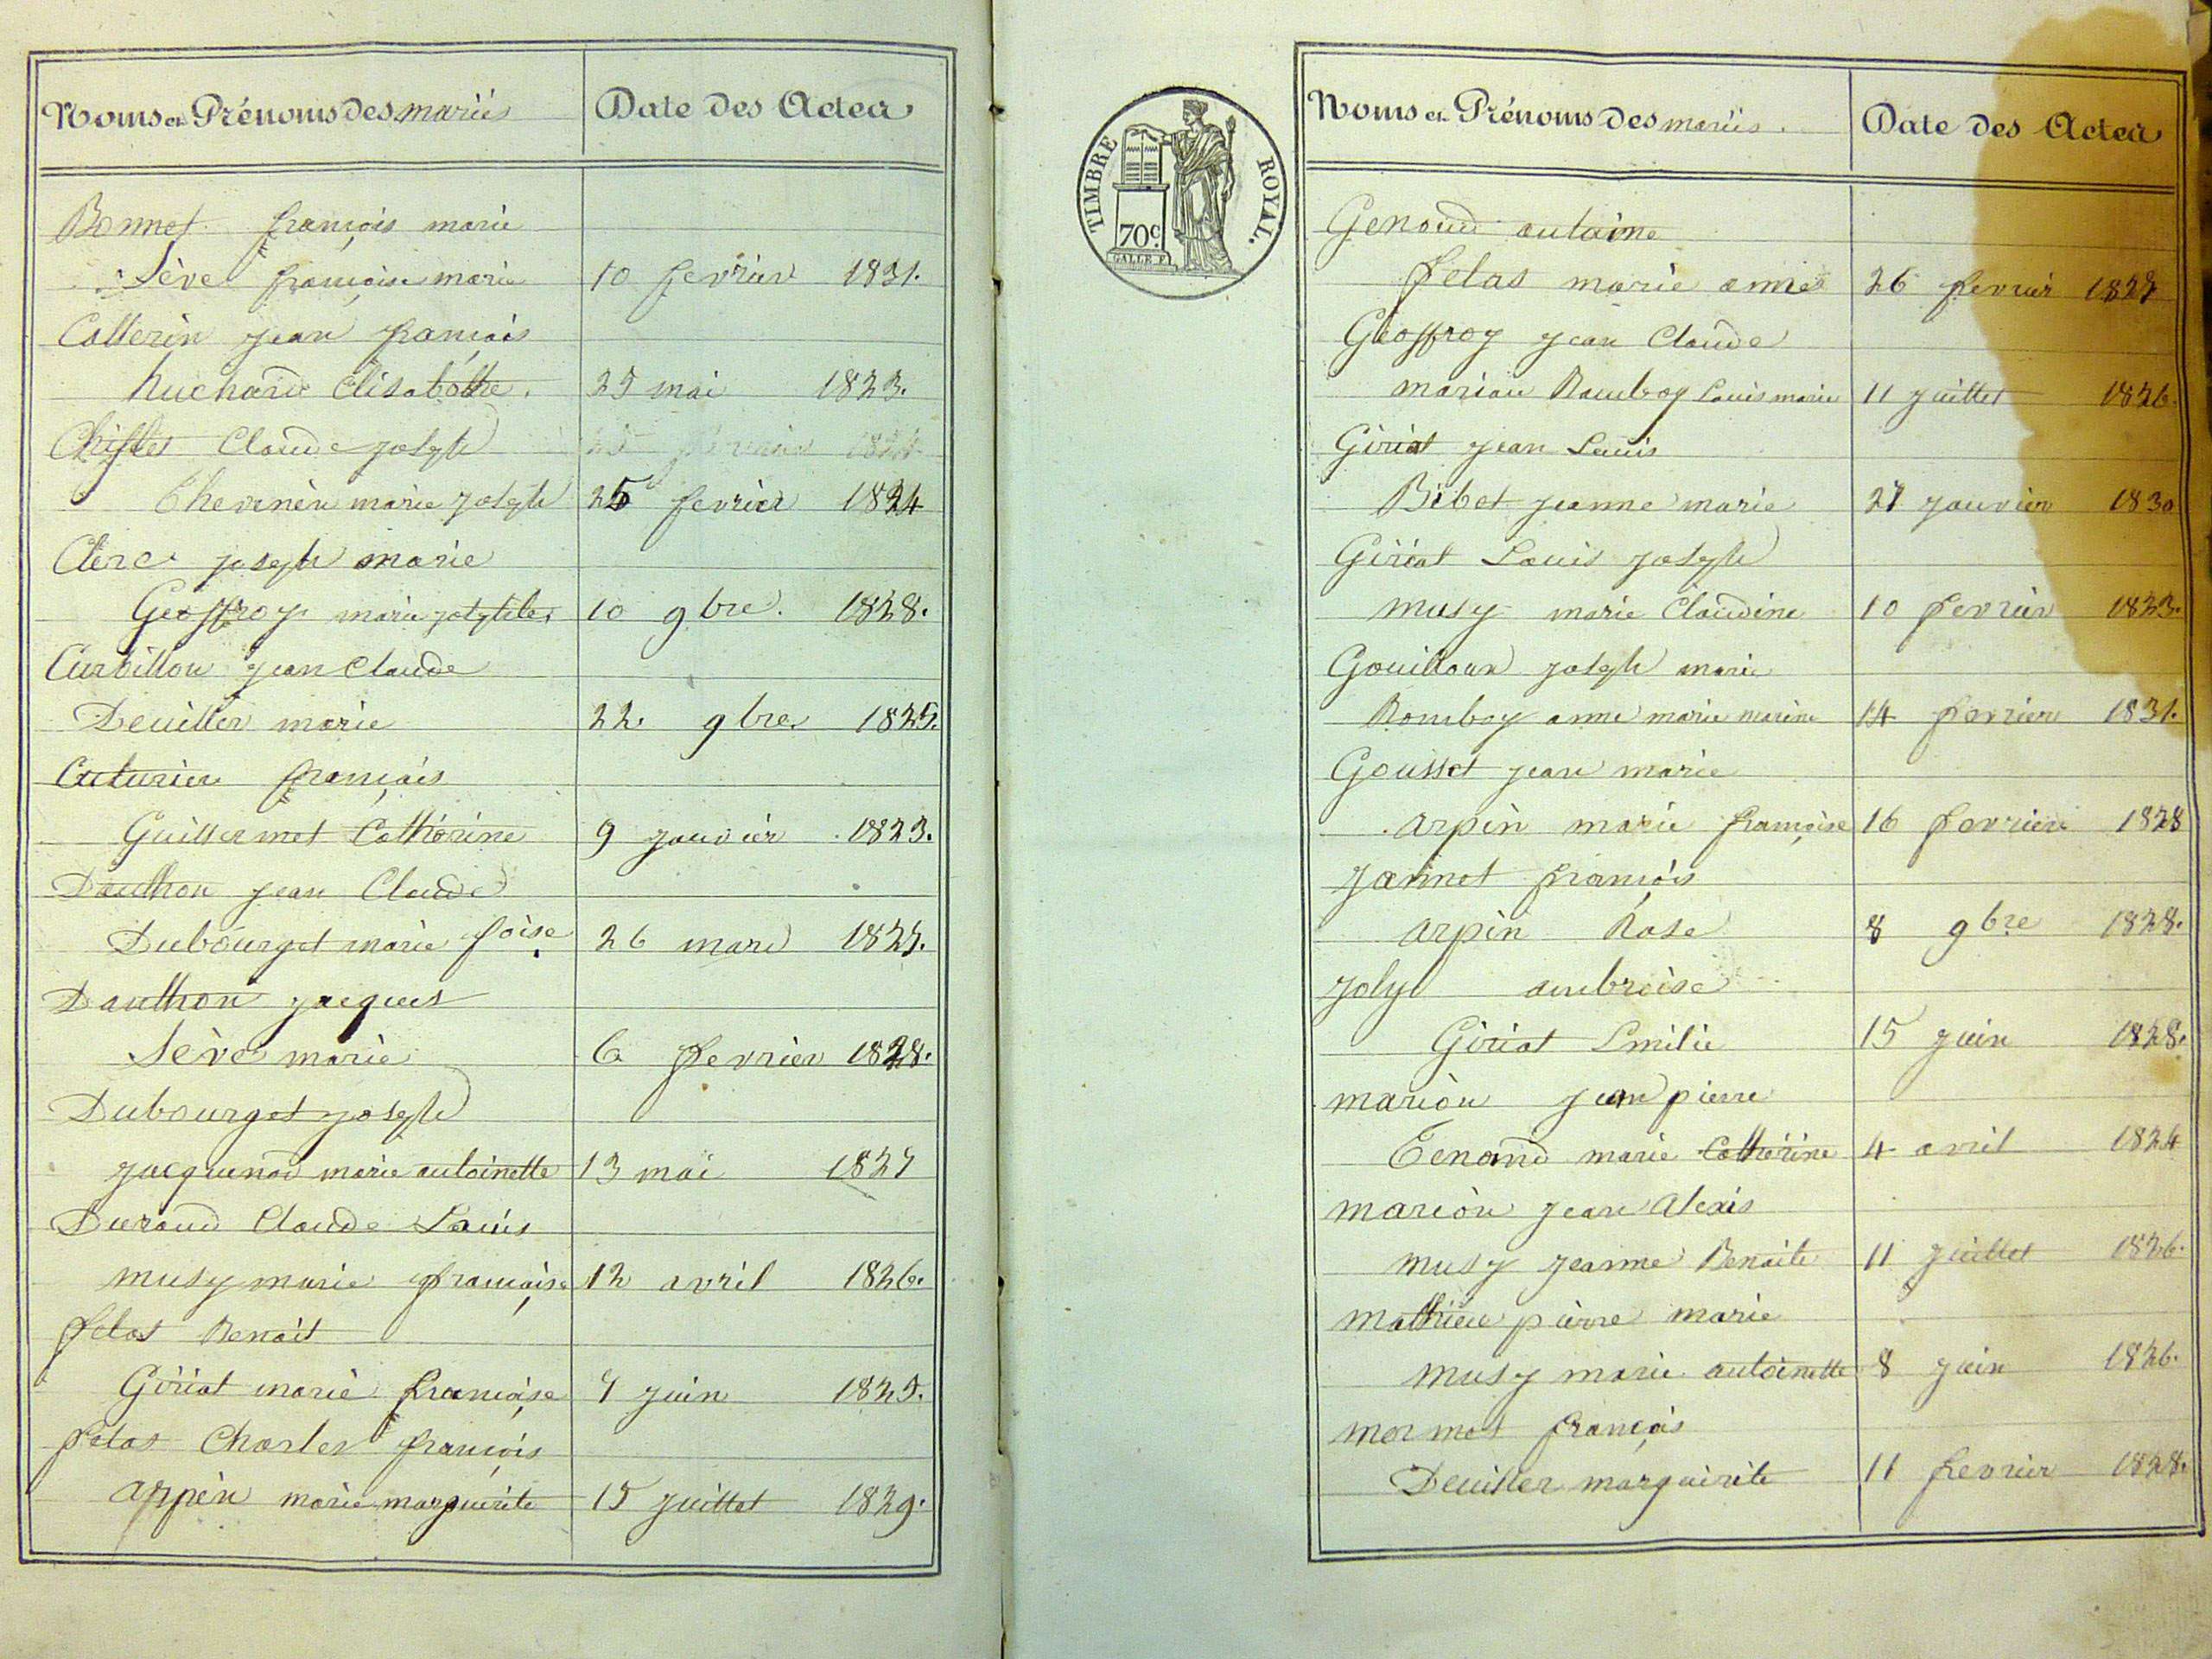 Noms et Prénoms des mariés
Date des Actes
Bonnet françois marie
Sève françoise marie 10 fevrier 1831.
Cotterin jean françois
huchard Elisabethe. 25 mai 1823.
Chifflet Claude joseph 25 fevrier 1824
marie joseph 25 fevrier 1824
Clerc joseph marie
Geoffroy marie josephte 10 9bre. 1828.
Curbillon jean Claude
Deuiller marie 22. 9bre. 1825.
Cuturier françois
Guillermet Cathérine 9 janvier 1823.
Dauthon jean Claude
Dubourget marie foise. 26 mars
Dauthon jacques
Sève marie 6 fevrier 1828.
Dubourget joseph
jacquenod marie antoinette 13 mai 1827
Durand Claude Louis
musy marie françoise 12 avril 1826.
felas Benoit
Giriat marie françoise 7 juin 1825.
felas Charles françois
arpin marie marguérite 15 juillet 1829.
TIMBRE ROYAL.
70c.
GALLE F.
Noms et Prénoms des mariés.
Date des Actes
Genoud antoine
felas marie anne 26 fevrier 1827
Géoffroy jean Claude
Louis marie 11 juillet 1826.
Giriat jean Louis
Bibet jeanne marie 27 janvier 1830
Giriat Louis joseph
musy marie Claudine 10 fevrier 1823.
Gouilloux joseph marie
Romboy anne marie marine 14 fevrier 1831.
Gousset jean marie
arpin marie françoise 16 fevrier 1828
jannet françois
arpin Rose 8 9bre 1828.
joly ambroise
Giriat Emilie 15 juin 1828.
marion jean pierre
Tenand marie Cathérine 4 avril 1824
marion jean alexis
musy jeanne Benoite 11 juillet 1826.
mathieu pierre marie
musy marie antoinette 8 juin 1826.
mermet françois
Deuiller marguérite 11 fevrier 1828.